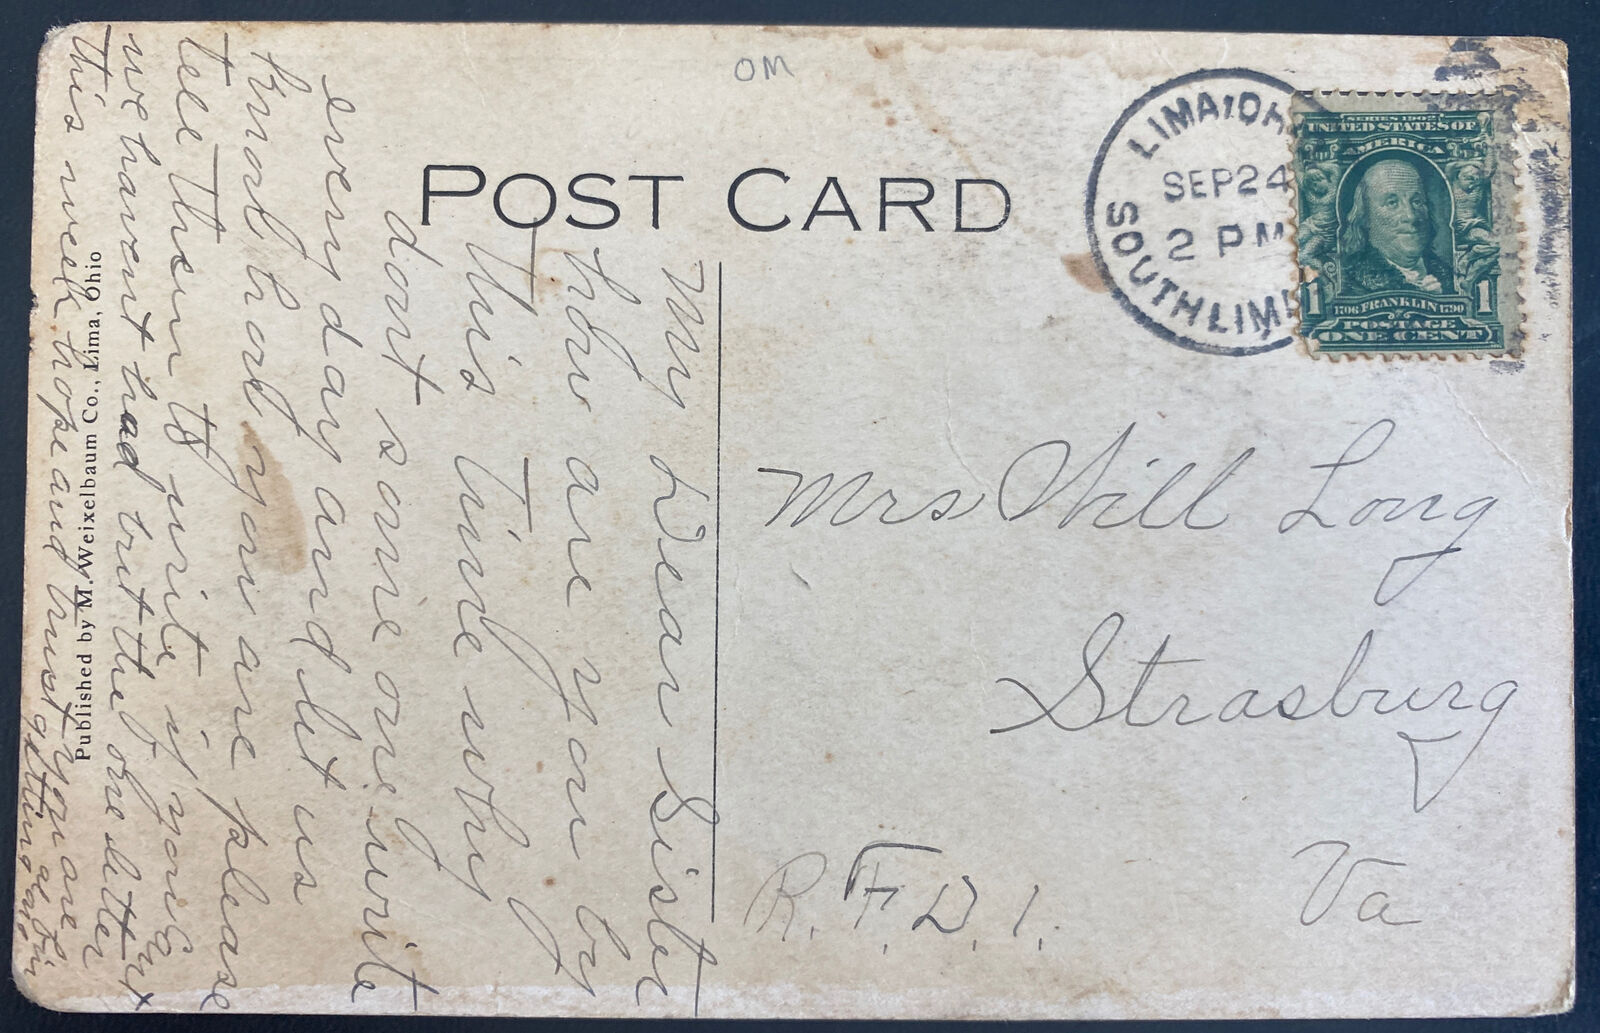 OM
POST CARD
LIMA, OH
SEP 24
2 PM
SOUTH LIMA
SERIES 1902
UNITED STATES OF
AMERICA
1 1706 FRANKLIN 1790 1
POSTAGE
ONE CENT
Mrs Will Long
Strasburg
Va
R.F.D. 1.
My Dear Sister
how are you by
this time why
dont some one write
every day and let us
know how you are please
tell them to write if you cant
we havent had but the one letter
this week hope and trust you are
getting
Published by M. Weixelbaum Co., Lima, Ohio